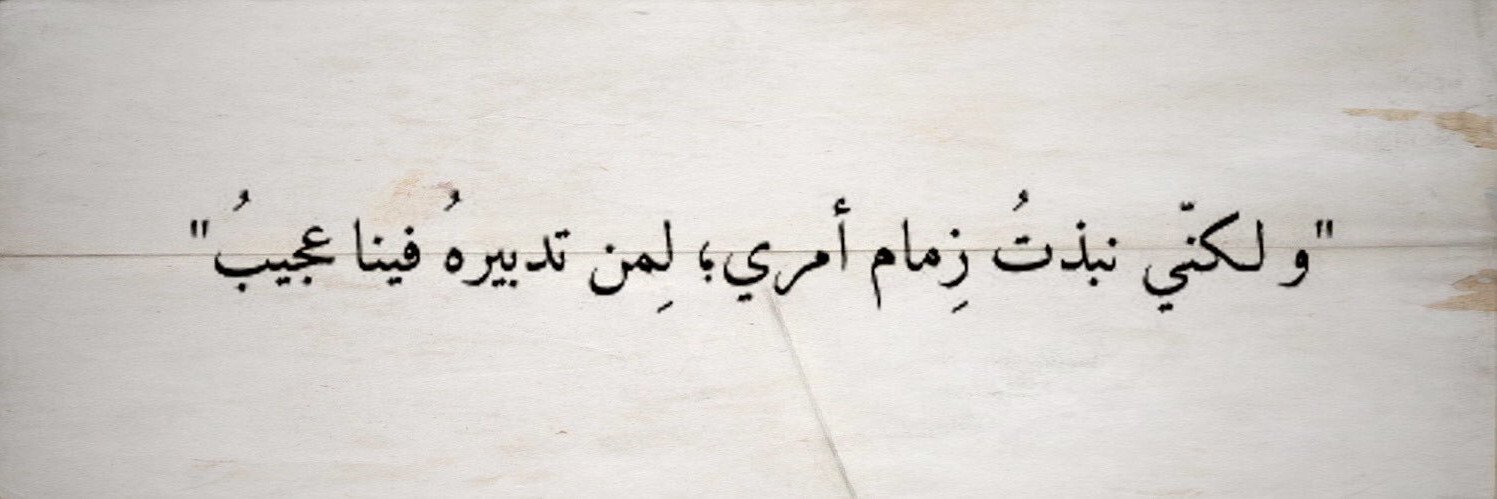 "و لكنّي نبذتُ زِمام أمري؛ لِمن تدبيرهُ فينا عجيبُ"